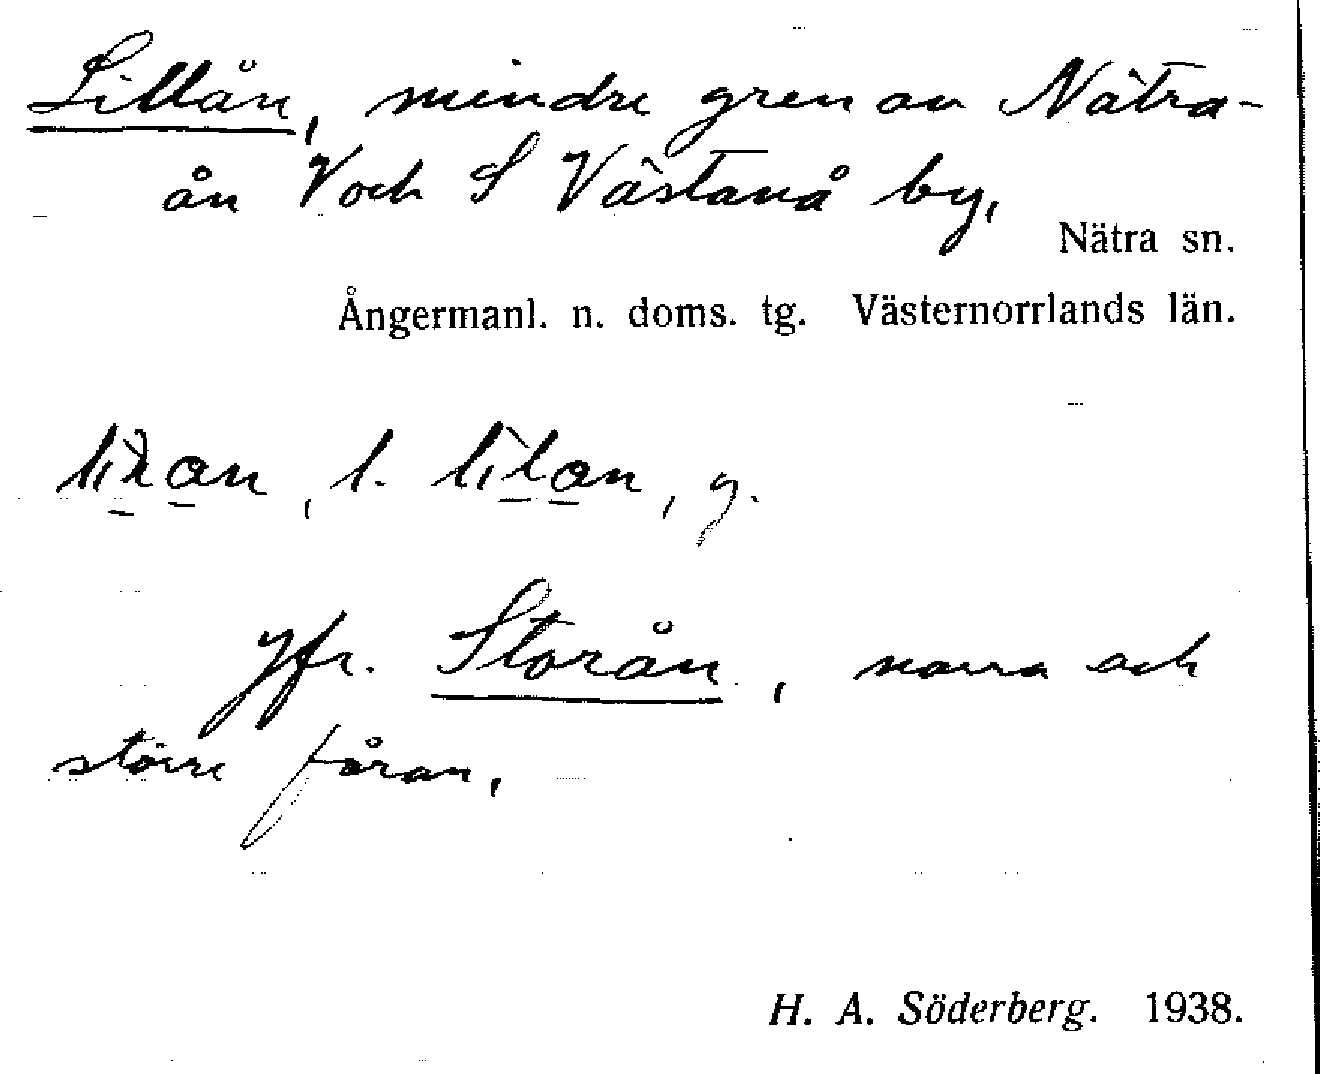 Lillån, mindre gren av Nätra-
ån V och S Västanå by,
Nätra sn.
Ångermanl. n. doms. tg. Västernorrlands län.
, l. , y.
Jfr. Storån, norra och
större fåran.
H. A. Söderberg. 1938.